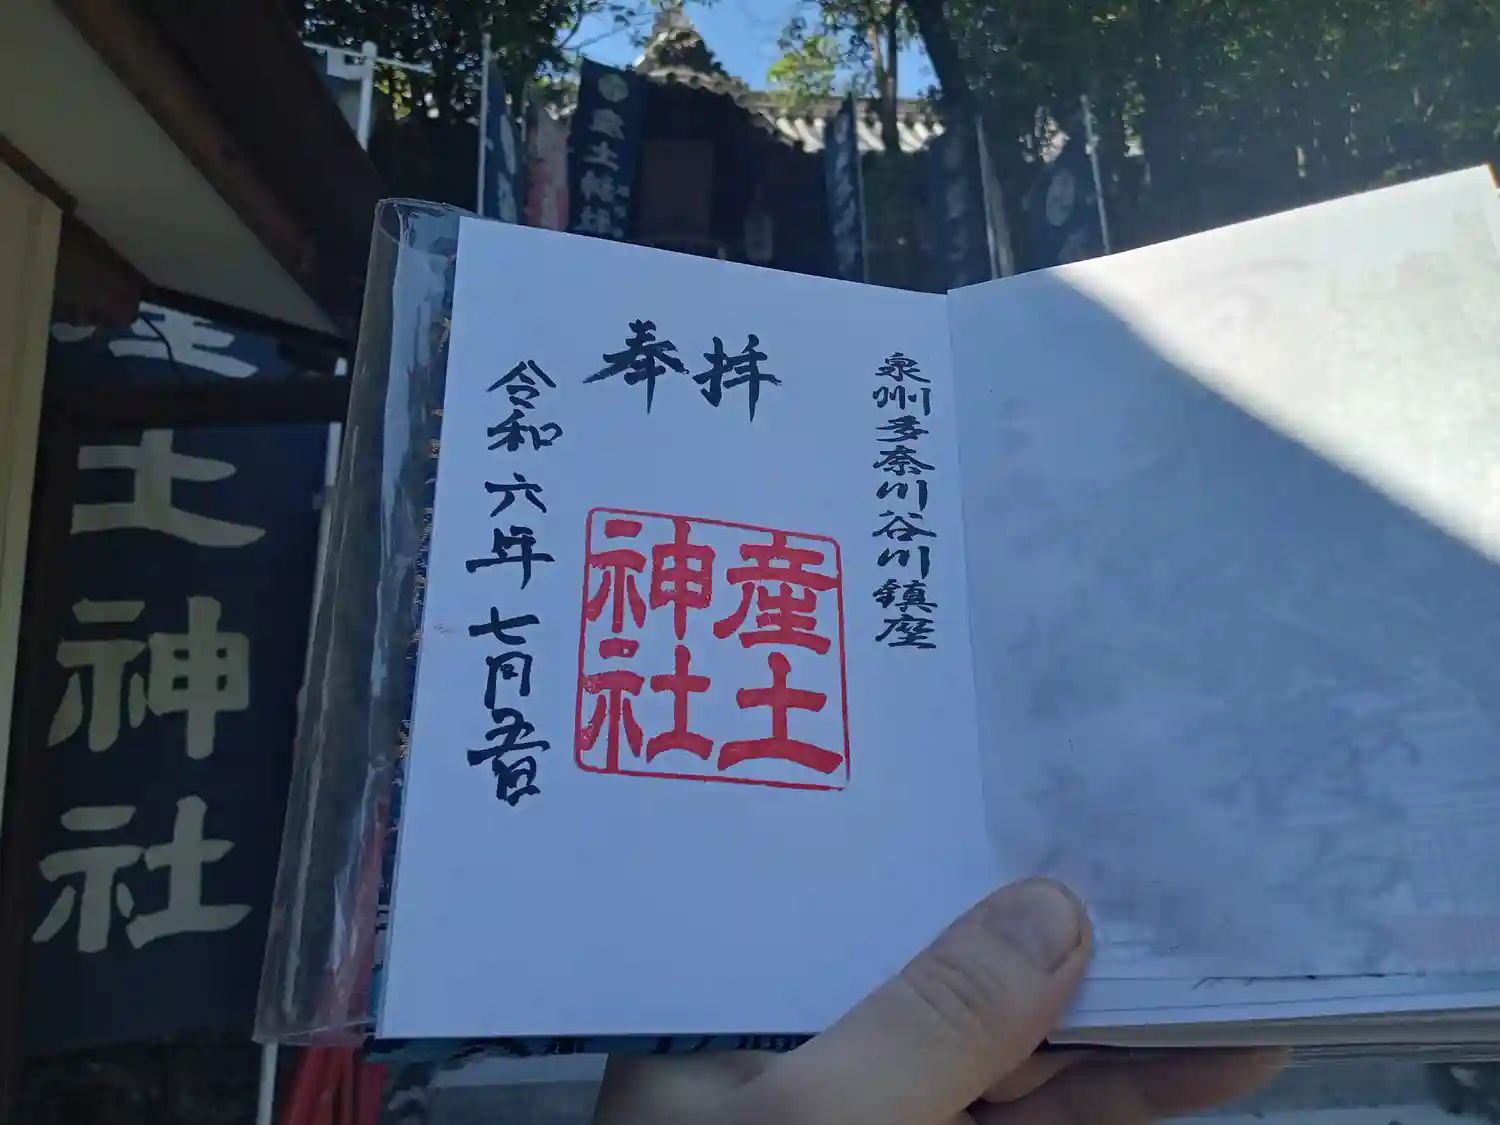 泉州多奈川谷川鎮座
奉拝
産土
神社
令和六年七月五日
産土神社
土神社